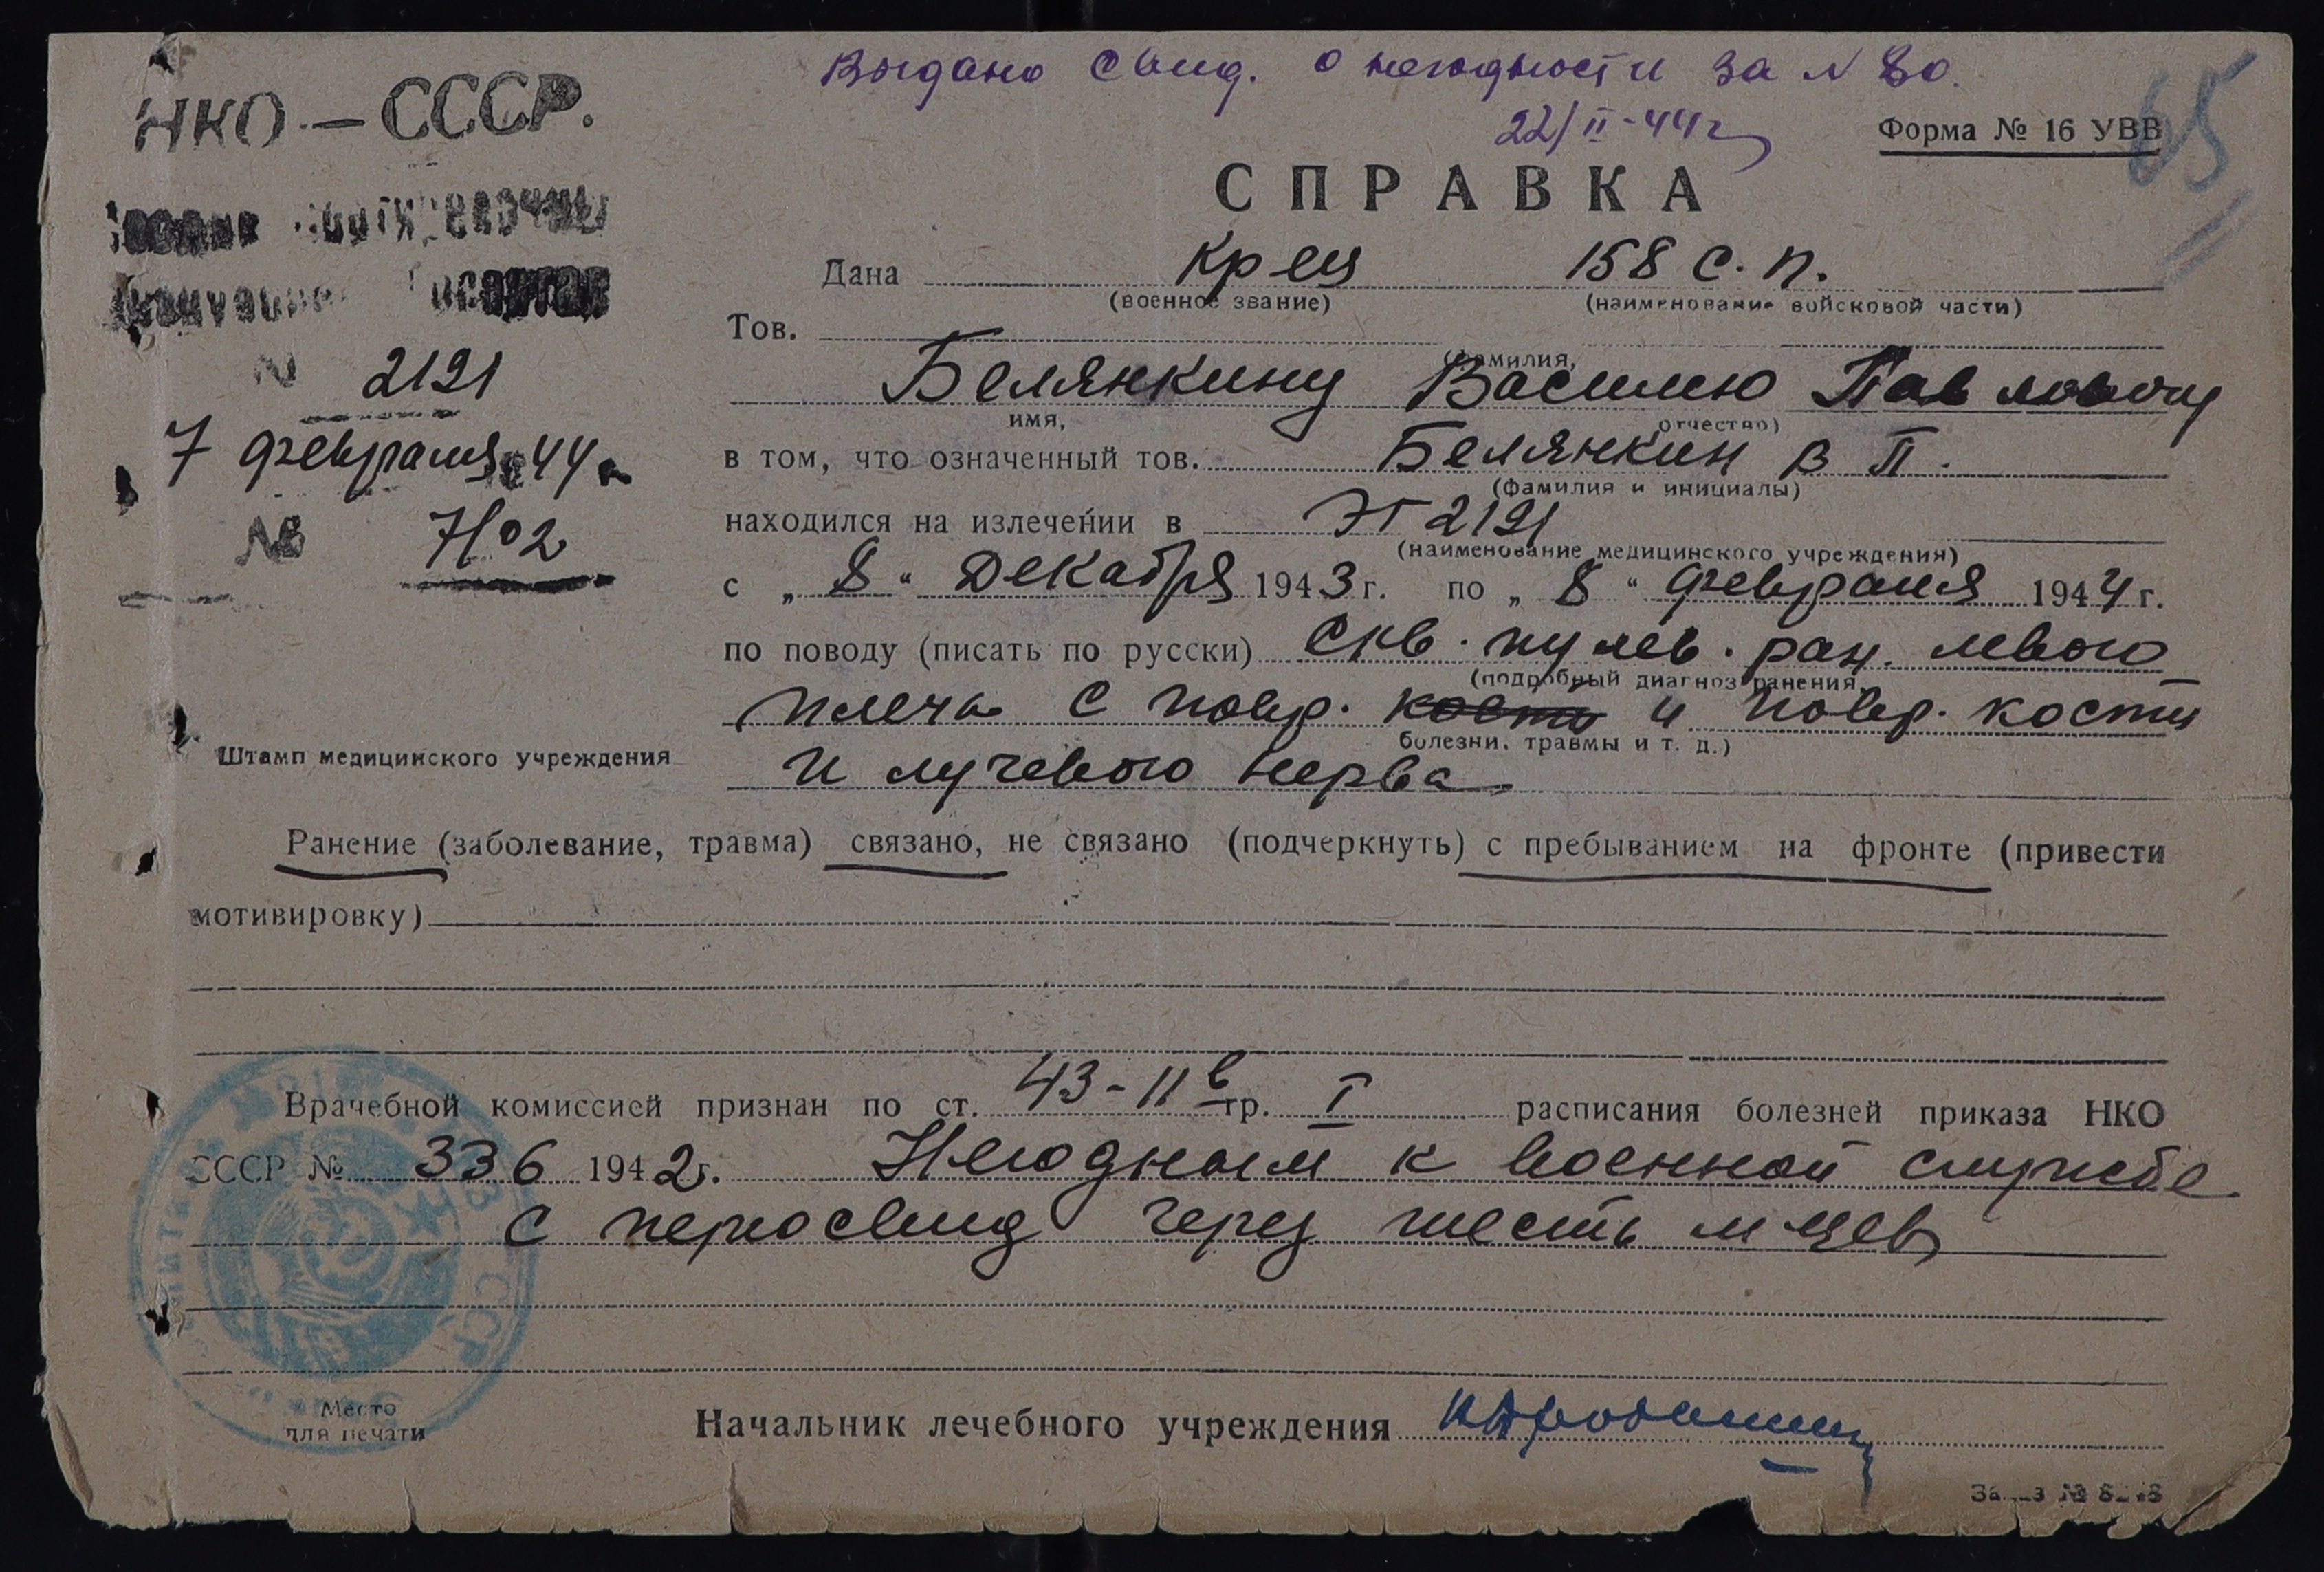 Выдано Свид. о негодности за N 80.
22/II-44г
65
НКО — СССР.
Форма № 16 УВВ
СПРАВКА
Дана кр-ец 158 с.п.
(военное звание) (наименование войсковой части)
Тов.
(фамилия,
N 2121
Белянкину Василию Павловичу
имя, отчество)
7 февраля 44
в том, что означенный тов. Белянкин В П.
(фамилия и инициалы)
№ 7/02
находился на излечении в ЭГ 2121
(наименование медицинского учреждения)
с „8“ Декабря 1943 г. по „8“ февраля 1944 г.
по поводу (писать по русски) Скв. пулев. ран. левого
(подробный диагноз ранения,
плеча с повр. кости и повр. кости
болезни, травмы и т. д.)
Штамп медицинского учреждения
и лучевого нерва
Ранение (заболевание, травма) связано, не связано (подчеркнуть) с пребыванием на фронте (привести
мотивировку)
Врачебной комиссией признан по ст. 43-IIв гр. I расписания болезней приказа НКО
СССР № 336 1942 г. Негодным к военной службе
с переосвид через шесть м-цев
Место
для печати
Начальник лечебного учреждения